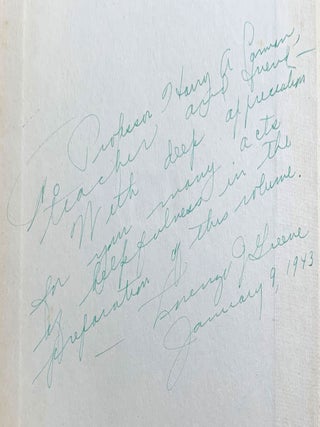 To Professor Harry A. Carman,
teacher and friend —
With deep appreciation
for your many acts
of helpfulness in the
preparation of this volume.
— Lorenzo J. Greene
January 9, 1943